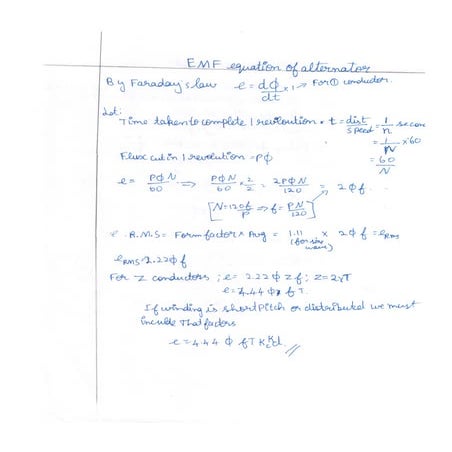 EMF equation of alternator
By Faraday's law e = dϕ/dt × 1 → For ① conductor.
Let:
Time taken to complete 1 revoloution • t = dist/speed = 1/n secon
= 1/N × 60
= 60/N
Flux cut in 1 revolution = Pϕ
e = PϕN/60 ⟹ PϕN/60 × 2/2 = 2PϕN/120 = 2ϕf.
[N = 120f/P ⟹ f = PN/120]
e . R.M.S = Form factor × Avg = 1.11 × 2ϕf = eRMS
(for sin wave)
eRMS = 2.22ϕf
For Z conductors ; e = 2.22ϕ Z f ; Z = 2T
e = 4.44 ϕ f T.
If winding is short pitch or distributed we must
inculde that factors
e = 4.44 ϕ f T Kc Kd //